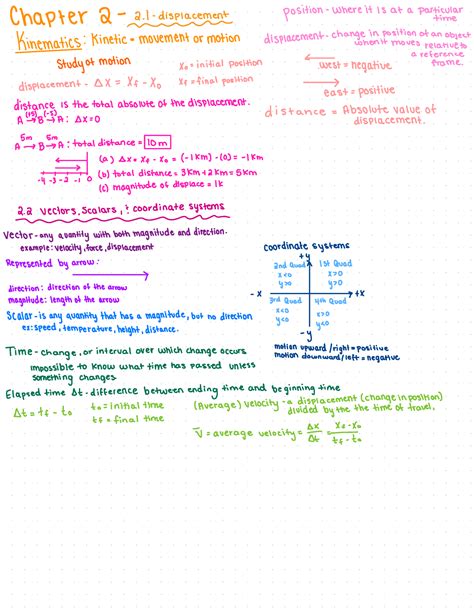 Chapter 2 - 2.1 - displacement
Kinematics: Kinetic + movement or motion
Study of motion
x₀ = initial position
displacement - Δx = xf - x₀
xf = final position
position - where it is at a particular time
displacement - change in position of an object
when it moves relative to
a reference
frame.
west = negative
east = positive
distance = Absolute value of
displacement.
distance is the total absolute of the displacement.
(15) (-5)
A → B → A : Δx = 0
5m 5m
A → B → A : total distance = 10m
(a) Δx = xf - x₀ = (-1km) - (0) = -1km
(b) total distance = 3km + 2km = 5km
(c) magnitude of displace = 1k
-4 -3 -2 -1 0
2.2 vectors, scalars, & coordinate systems
Vector - any quantity with both magnitude and direction.
example: velocity, force, displacement
Represented by arrow:
direction: direction of the arrow
magnitude: length of the arrow
Scalar - is any quantity that has a magnitude, but no direction
ex: speed, temperature, height, distance.
Coordinate systems
+y
2nd Quad 1st Quad
x<0 x>0
y>0 y>0
-x +x
3rd Quad 4th Quad
x<0 x>0
y<0 y<0
-y
motion upward/right = positive
motion downward/left = negative
Time - change, or interval over which change occurs
impossible to know what time has passed unless
something changes
Elapsed time Δt - difference between ending time and beginning time
Δt = tf - t₀
t₀ = initial time
tf = final time
(Average) velocity - a displacement (change in position)
divided by the the time of travel.
V̄ = average velocity = Δx/Δt = xf - x₀/tf - t₀